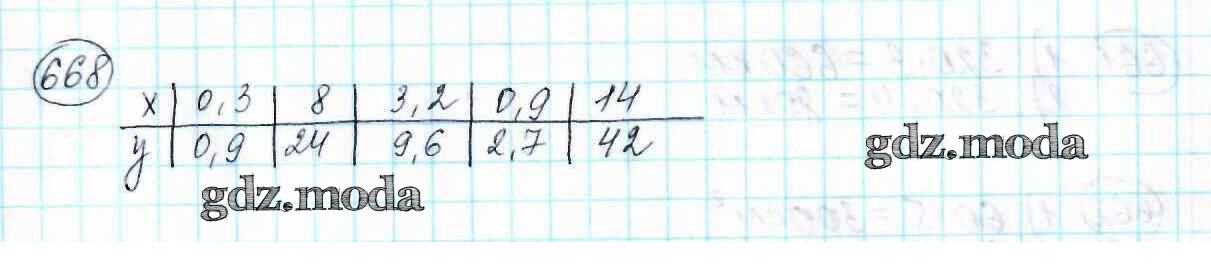 668
x | 0,3 | 8 | 3,2 | 0,9 | 14
y | 0,9 | 24 | 9,6 | 2,7 | 42
gdz.moda
gdz.moda